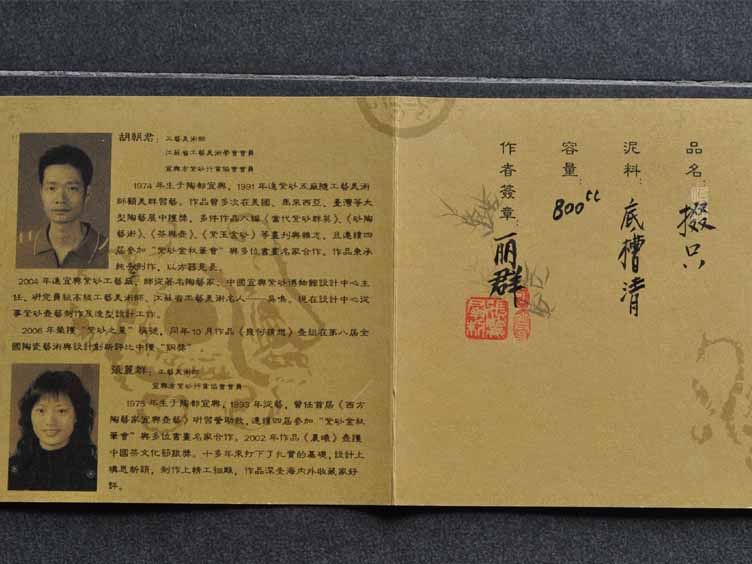 胡朝君：工藝美術師
江蘇省工藝美術學會會員
宜興市紫砂行業協會會員
1974年生于陶都宜興，1991年進紫砂五廠隨工藝美術
師顧美群習藝。作品曾多次在美國、馬來西亞、臺灣等大
型陶藝展中獲獎，多件作品入編《當代紫砂群英》、《砂陶
藝術》、《茶與壺》、《紫玉金砂》等畫刊與雜志，且連續四
屆參加“紫砂金秋筆會”與多位書畫名家合作。作品秉承
純手制作，以方器見長。
2004年進宜興紫砂工藝廠，師從著名陶藝家、中國宜興紫砂博物館設計中心主
任、研究員級高級工藝美術師、江蘇省工藝美術名人——吳鳴。現在設計中心從
事紫砂壺藝制作及造型設計工作。
2006年榮獲“紫砂之星”稱號，同年10月作品《幾何猜想》壺組在第八屆全
國陶瓷藝術與設計創新評比中獲“銅獎”
張麗群：工藝美術師
宜興市紫砂行業協會會員
1975年生于陶都宜興，1993年從藝，曾任首屆《西方
陶藝家宜興壺藝》研習營助教，連續四屆參加“紫砂金秋
筆會”與多位書畫名家合作。2002年作品《晨曦》壺獲
中國茶文化節銀獎。十多年來打下了扎實的基礎，設計上
構思新穎，制作上精工細雕，作品深受海内外收藏家好
評。
品名：掇只
泥料：底槽清
容量：800cc
作者簽章：丽群